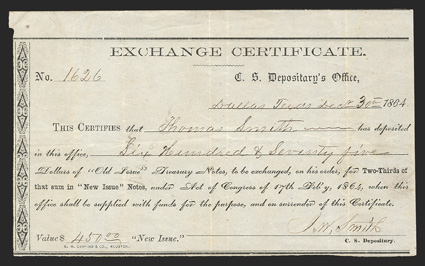 EXCHANGE CERTIFICATE.
No. 1626 C. S. Depositary's Office,
Dallas Texas Dec 30th 1864
THIS CERTIFIES that Thomas Smith has deposited
in this office, Six Hundred & Seventy five
Dollars of "Old Issue" Treasury Notes, to be exchanged, on his order, for Two-Thirds of
that sum in "New Issue" Notes, under Act of Congress of 17th Feb'y, 1864, when this
office shall be supplied with funds for the purpose, and on surrender of this Certificate.
J. W. Smith
Value $ 450.00 "New Issue."
C. S. Depositary.